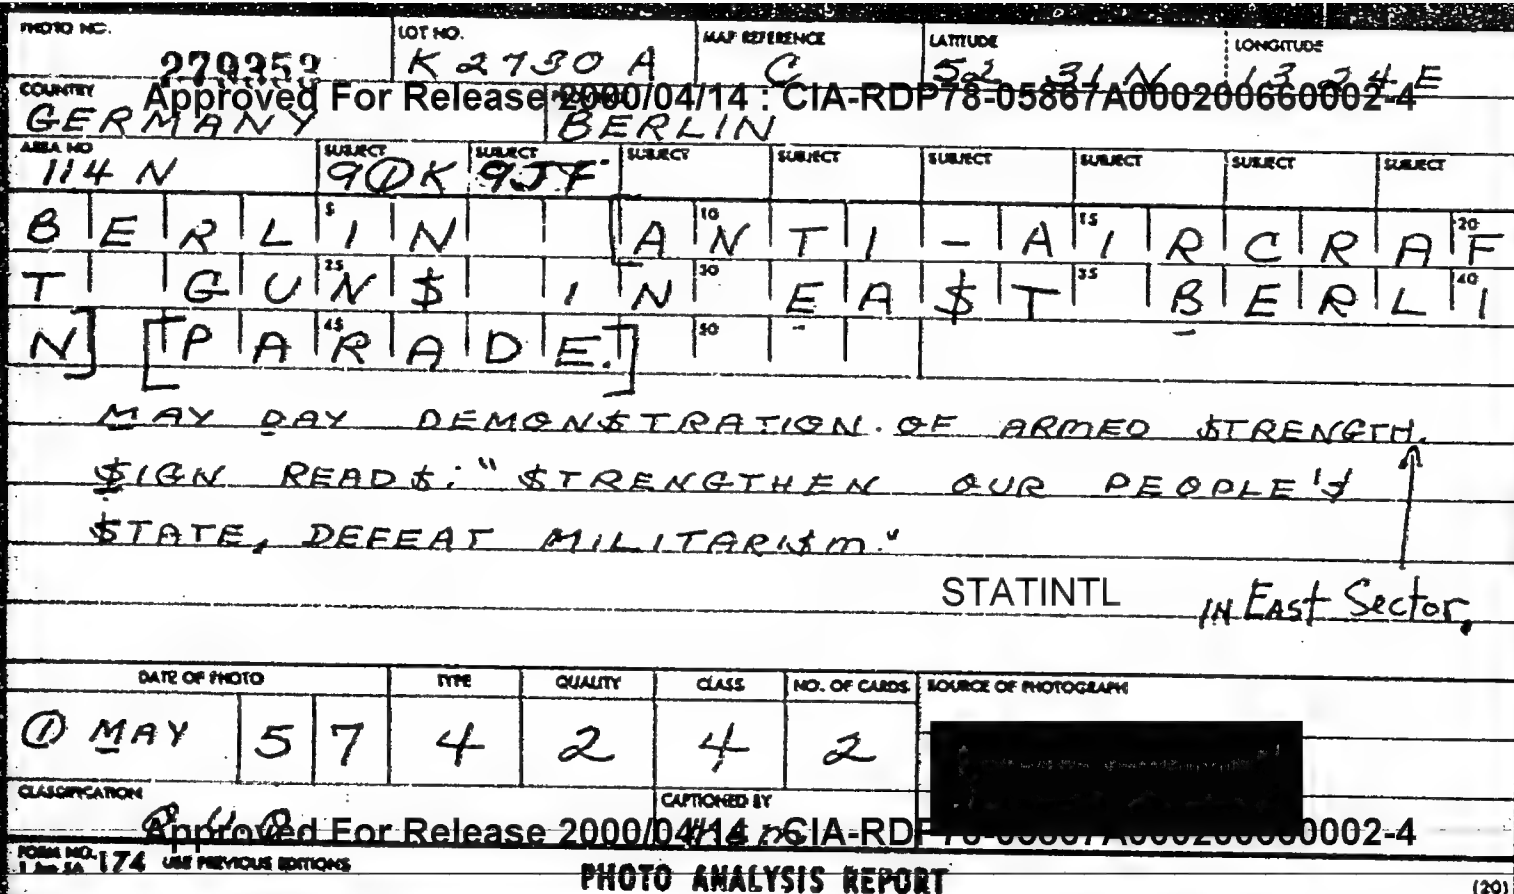 PHOTO NO. LOT NO. MAP REFERENCE LATITUDE LONGITUDE
279353 K 2730 A C 52 31 N 13 24 E
Approved For Release 2000/04/14 : CIA-RDP78-05867A000200660002-4
COUNTRY
GERMANY BERLIN
AREA NO SUBJECT SUBJECT SUBJECT SUBJECT SUBJECT SUBJECT SUBJECT SUBJECT
114 N 9ØK 9JF
BERLIN [ANTI-AIRCRAF
5 10 15 20
T GUN$ IN EA$T BERLI
25 30 35 40
N] [PARADE.]
45 50
MAY DAY DEMON$TRATION OF ARMED $TRENGTH.
$IGN READ$: "$TRENGTHEN OUR PEOPLE'$
$TATE, DEFEAT MILITARI$M."
STATINTL IN EAST Sector.
DATE OF PHOTO TYPE QUALITY CLASS NO. OF CARDS SOURCE OF PHOTOGRAPH
① MAY 57 4 2 4 2
CLASSIFICATION CAPTIONED BY
Approved For Release 2000/04/14 : CIA-RDP78-05867A000200660002-4
FORM NO. 174 USE PREVIOUS EDITIONS
1 Jan 5A
PHOTO ANALYSIS REPORT (20)